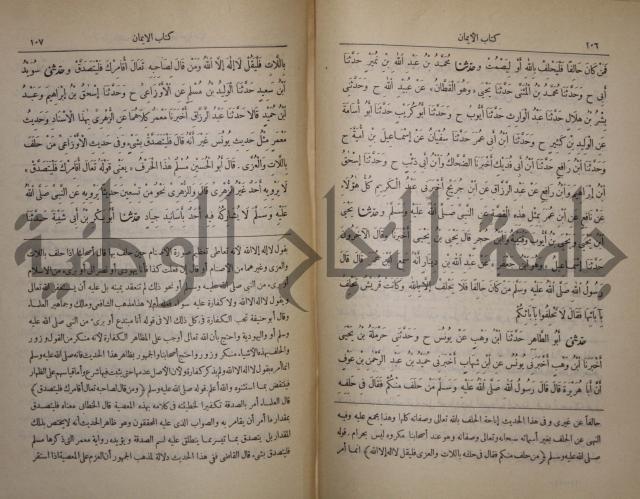 ١٠٦ كتاب الايمان
فمن كان حالفا فليحلف بالله أو ليصمت وحدثنا محمد بن عبد الله بن نمير حدثنا
أبي ح وحدثنا محمد بن المثنى حدثنا يحيى «وهو القطان» عن عبيد الله ح وحدثني
بشر بن هلال حدثنا عبد الوارث حدثنا أيوب ح وحدثنا أبو كريب حدثنا أبو أسامة
عن الوليد بن كثير ح وحدثنا ابن أبي عمر حدثنا سفيان عن إسماعيل بن أمية ح
وحدثنا ابن رافع حدثنا ابن أبي فديك أخبرنا الضحاك وابن أبي ذئب ح وحدثنا إسحق
ابن إبراهيم وابن رافع عن عبد الرزاق عن ابن جريج أخبرني عبد الكريم كل هؤلاء
عن نافع عن ابن عمر بمثل هذه القصة عن النبي صلى الله عليه وسلم وحدثنا يحيى
ابن يحيى ويحيى بن أيوب وقتيبة وابن حجر قال يحيى بن يحيى أخبرنا وقال الآخرون
حدثنا إسماعيل «وهو ابن جعفر» عن عبد الله بن دينار أنه سمع ابن عمر قال قال
رسول الله صلى الله عليه وسلم من كان حالفا فلا يحلف إلا بالله وكانت قريش تحلف
بآبائها فقال لا تحلفوا بآبائكم
حدثني أبو الطاهر حدثنا ابن وهب عن يونس ح وحدثني حرملة بن يحيى
أخبرنا ابن وهب أخبرني يونس عن ابن شهاب أخبرني حميد بن عبد الرحمن بن عوف
أن أبا هريرة قال قال رسول الله صلى الله عليه وسلم من حلف منكم فقال في حلفه
حالفا عن غيري وفي هذا الحديث إباحة الحلف بالله تعالى وصفاته كلها وهذا مجمع عليه وفيه
النهي عن الحلف بغير أسمائه سبحانه وتعالى وصفاته وهو عند أصحابنا مكروه ليس بحرام. قوله
صلى الله عليه وسلم ﴿من حلف منكم فقال في حلفه باللات والعزى فليقل لا إله إلا الله﴾ انما أمر
كتاب الايمان ١٠٧
باللات فليقل لا إله إلا الله ومن قال لصاحبه تعال أقامرك فليتصدق وحدثني سويد
ابن سعيد حدثنا الوليد بن مسلم عن الأوزاعي ح وحدثنا إسحق بن إبراهيم وعبد
ابن حميد قالا حدثنا عبد الرزاق أخبرنا معمر كلاهما عن الزهري بهذا الاسناد وحديث
معمر مثل حديث يونس غير أنه قال فليتصدق بشيء وفي حديث الأوزاعي من حلف
باللات والعزى. قال أبو الحسين مسلم هذا الحرف «يعني قوله تعال أقامرك فليتصدق»
لا يرويه أحد غير الزهري قال وللزهري نحو من تسعين حديثا يرويه عن النبي صلى الله
عليه وسلم لا يشاركه فيه أحد بأسانيد جياد حدثنا أبو بكر بن أبي شيبة حدثنا
بقول لا إله إلا الله لأنه تعاطى تعظيم صورة الأصنام حين حلف بها قال أصحابنا إذا حلف باللات
والعزى وغيرهما من الأصنام أو قال إن فعلت كذا فأنا يهودي أو نصراني أو بريء من الاسلام
أو بريء من النبي صلى الله عليه وسلم أو نحو ذلك لم تنعقد يمينه بل عليه أن يستغفر الله تعالى
ويقول لا إله إلا الله ولا كفارة عليه سواء فعله أم لا هذا مذهب الشافعي ومالك وجماهير العلماء
وقال أبو حنيفة تجب الكفارة في كل ذلك الا في قوله أنا مبتدع أو بريء من النبي صلى الله عليه
وسلم أو واليهودية واحتج بأن الله تعالى أوجب على المظاهر الكفارة لأنه منكر من القول وزور
والحلف بهذه الأشياء منكر وزور واحتج أصحابنا والجمهور بظاهر هذا الحديث فانه صلى الله عليه وسلم
انما أمره بقول لا إله إلا الله ولم يذكر كفارة ولأن الأصل عدمها حتى يثبت فيها شرع وأما قياسهم على الظهار
فينتقض بما استثنوه والله أعلم. قوله صلى الله عليه وسلم ﴿ومن قال لصاحبه تعال أقامرك فليتصدق﴾
قال العلماء أمر بالصدقة تكفيرا لخطيئته في كلامه بهذه المعصية قال الخطابي معناه فليتصدق
بمقدار ما أمر أن يقامر به والصواب الذي عليه المحققون وهو ظاهر الحديث أنه لا يختص بذلك
المقدار بل يتصدق بما تيسر مما ينطلق عليه اسم الصدقة ويؤيده رواية معمر التي ذكرها مسلم
فليتصدق بشيء. قال القاضي ففي هذا الحديث دلالة لمذهب الجمهور أن العزم على المعصية اذا استقر
جامعة النجاح الوطنية